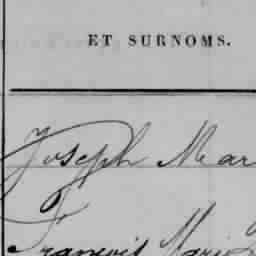 ET SURNOMS.
Joseph Mar
François Marie